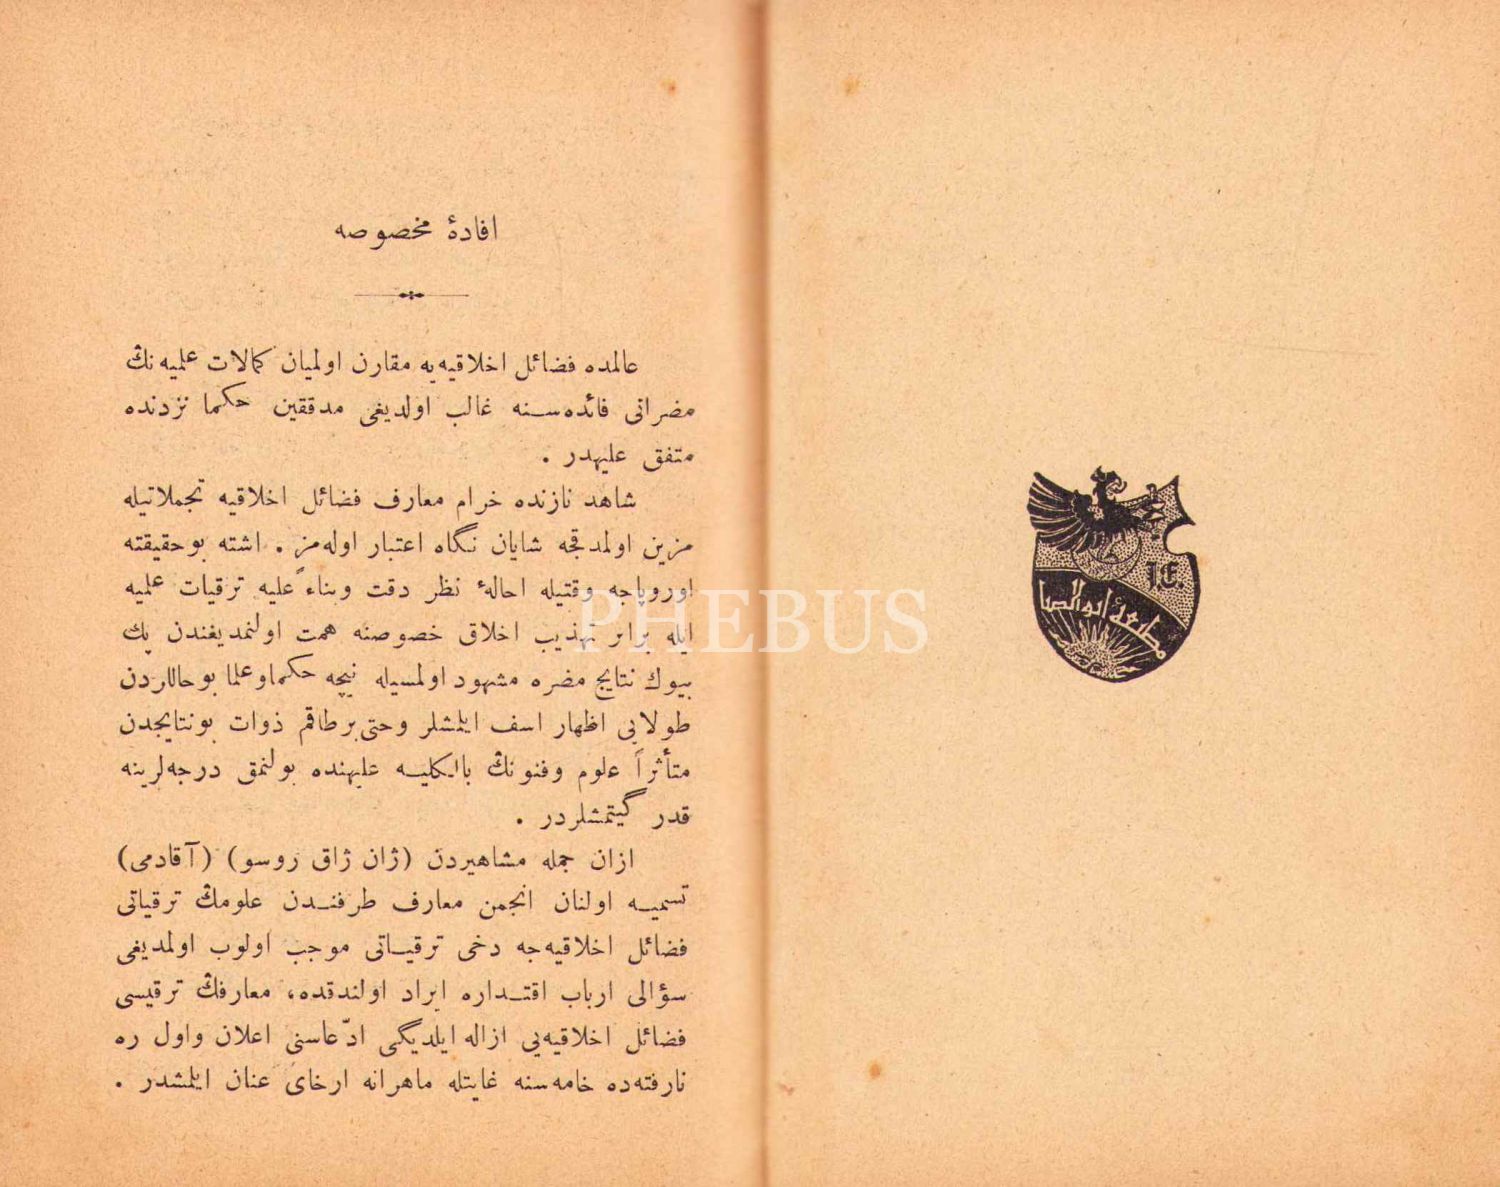 مطبعهٔ ابوالضيا
J.E.
افادهٔ مخصوصه
عالمده فضائل اخلاقيه‌يه مقارن اولميان كمالات علميه‌نڭ
مضراتی فائده‌سـنه غالب اولديغی مدققين حكما نزدنده
متفق عليهدر .
شاهد نازنده خرام معارف فضائل اخلاقيه تجملاتيله
مزين اولمدقجه شايان نگاه اعتبار اوله‌مز . اشته بوحقيقته
اوروپاجه وقتيله احالهٔ نظر دقت وبناءً عليه ترقيات علميه
ايله برابر تهذيب اخلاق خصوصنه همت اولنمديغندن پك
بيوك نتايج مضره مشهود اولمسيله نيچه حكماوعلما بوحاللردن
طولايی اظهار اسف ايلمشلر وحتی برطاقم ذوات بونتايجدن
متأثراً علوم وفنونڭ بالكليـه عليهنده بولنمق درجه‌لرينه
قدر گيتمشلردر .
ازان جمله مشاهيردن (ژان ژاق روسو) (آقادمی)
تسميـه اولنان انجمن معارف طرفنـدن علومڭ ترقياتی
فضائل اخلاقيه‌جه دخی ترقيـاتی موجب اولوب اولمديغی
سؤالی ارباب اقتـداره ايراد اولندقده، معارفڭ ترقيسی
فضائل اخلاقيه‌يی ازاله ايلديگی ادّعاسنی اعلان واول ره
نارفته‌ده خامه‌سنه غايتله ماهرانه ارخای عنان ايلمشدر .
PHEBUS